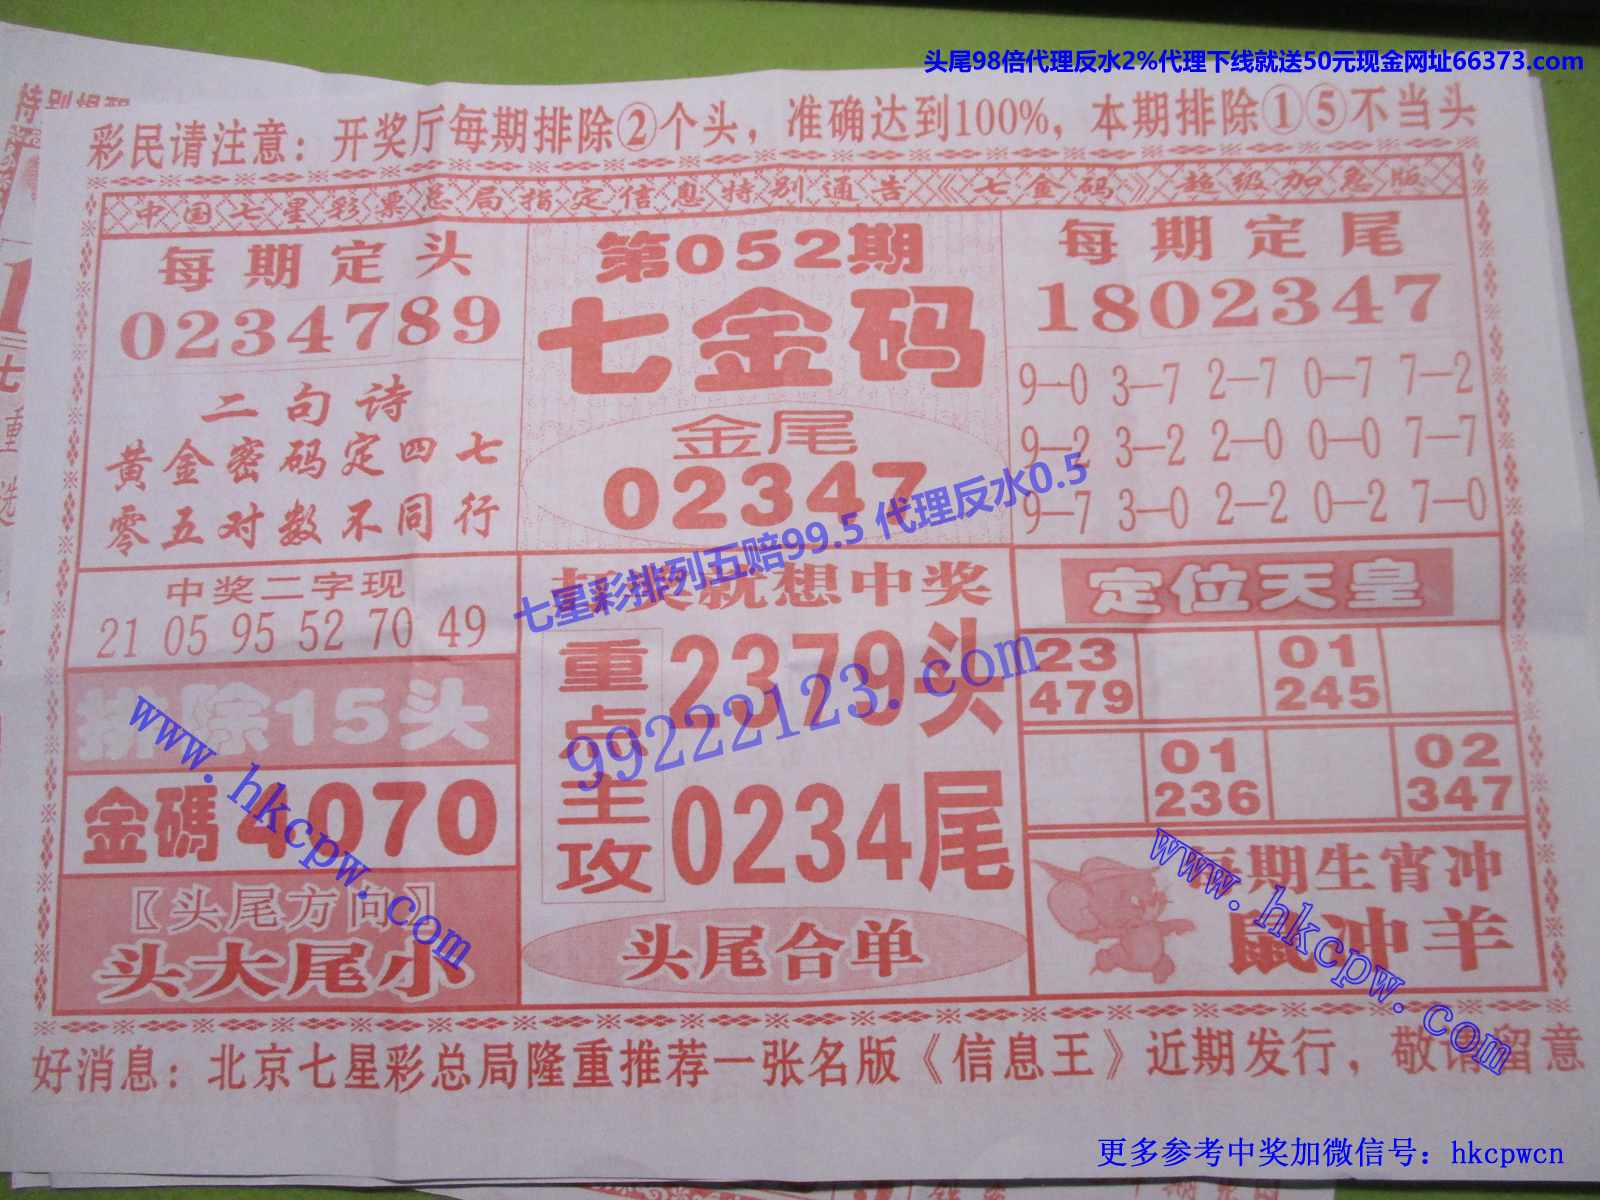 头尾98倍代理反水2%代理下线就送50元现金网址66373.com
彩民请注意：开奖厅每期排除②个头，准确达到100%，本期排除①⑤不当头
中国七星彩票总局指定信息特别通告《七金码》超级加急版
每期定头
0234789
二句诗
黄金密码定四七
零五对数不同行
中奖二字现
21 05 95 52 70 49
排除15头
金碼4070
〖头尾方向〗
头大尾小
第052期
七金码
金尾
02347
就想中奖
重点主攻
2379头
0234尾
头尾合单
每期定尾
1802347
9—0 3—7 2—7 0—7 7—2
9—2 3—2 2—0 0—0 7—7
9—7 3—0 2—2 0—2 7—0
定位天皇
23 01
479 245
01 02
236 347
每期生肖冲
鼠冲羊
好消息：北京七星彩总局隆重推荐一张名版《信息王》近期发行，敬请留意
七星彩排列五赔99.5 代理反水0.5
99222123.com
www.hkcpw.com
www.hkcpw.com
更多参考中奖加微信号：hkcpwcn